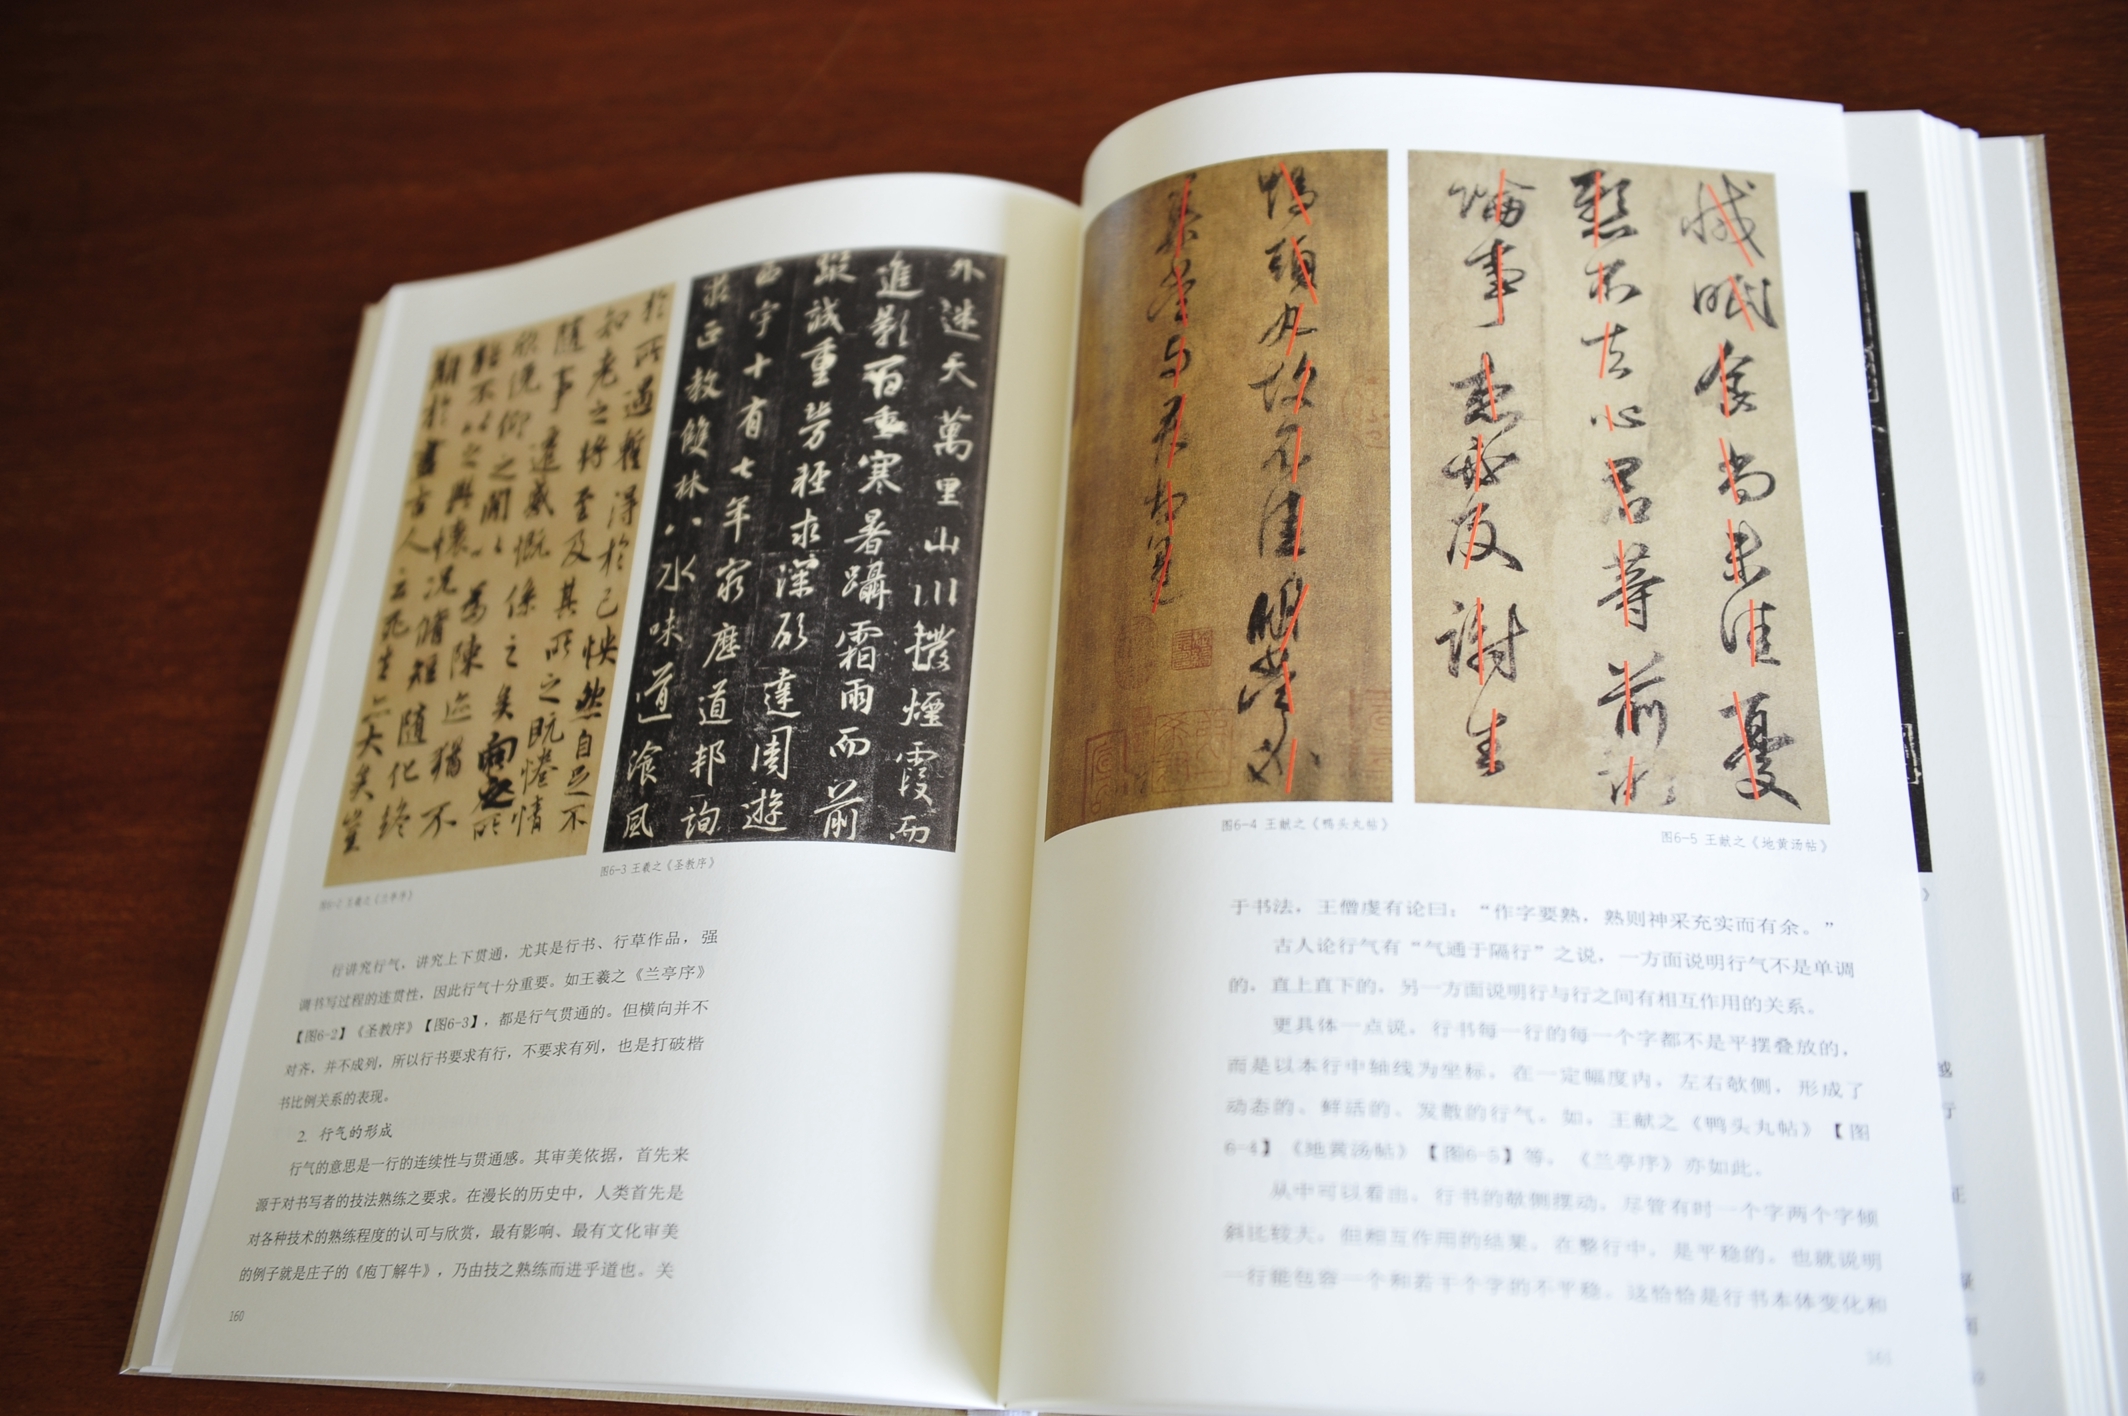 於所遇暫得於己快然自足不
知老之将至及其所之既惓情
随事遷感慨係之矣向之所
欣俛仰之閒以為陳迹猶不
能不以之興懷況脩短随化終
期於盡古人云死生亦大矣豈
图6-2 王羲之《兰亭序》
外迷天萬里山川撥煙霞而
進影百重寒暑躡霜雨而前
蹤誠重勞輕求深願達周遊
西宇十有七年窮歷道邦詢
求正教雙林八水味道飡風
图6-3 王羲之《圣教序》
行讲究行气，讲究上下贯通，尤其是行书、行草作品，强
调书写过程的连贯性，因此行气十分重要。如王羲之《兰亭序》
【图6-2】《圣教序》【图6-3】，都是行气贯通的。但横向并不
对齐，并不成列，所以行书要求有行，不要求有列，也是打破楷
书比例关系的表现。
2. 行气的形成
行气的意思是一行的连续性与贯通感。其审美依据，首先来
源于对书写者的技法熟练之要求。在漫长的历史中，人类首先是
对各种技术的熟练程度的认可与欣赏，最有影响、最有文化审美
的例子就是庄子的《庖丁解牛》，乃由技之熟练而进乎道也。关
160
鴨頭丸故不佳明當必
集當与君相見
图6-4 王献之《鸭头丸帖》
減眠食尚未佳憂
懸不去心君等前所
論事想必及謝生
图6-5 王献之《地黄汤帖》
于书法，王僧虔有论曰：“作字要熟，熟则神采充实而有余。”
古人论行气有“气通于隔行”之说，一方面说明行气不是单调
的，直上直下的，另一方面说明行与行之间有相互作用的关系。
更具体一点说，行书每一行的每一个字都不是平摆叠放的，
而是以本行中轴线为坐标，在一定幅度内，左右欹侧，形成了
动态的、鲜活的、发散的行气。如，王献之《鸭头丸帖》【图
6-4】《地黄汤帖》【图6-5】等，《兰亭序》亦如此。
从中可以看出，行书的欹侧摆动，尽管有时一个字两个字倾
斜比较大，但相互作用的结果，在整行中，是平稳的，也就说明
一行能包容一个和若干个字的不平稳，这恰恰是行书本体变化和
161